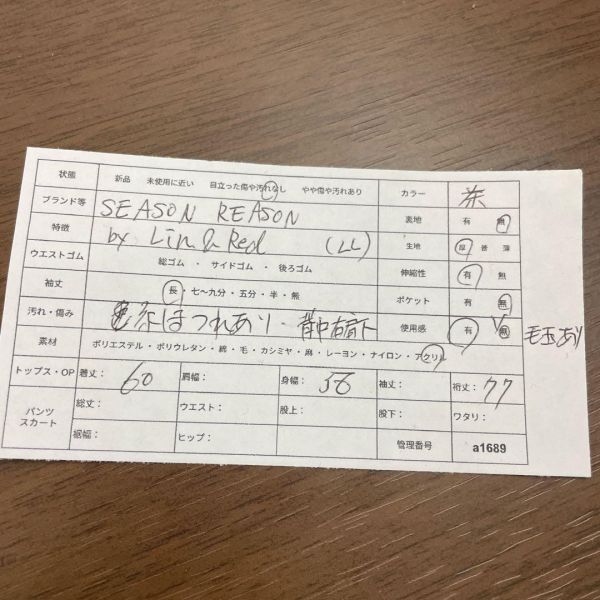 状態 新品 未使用に近い 目立った傷や汚れなし やや傷や汚れあり カラー 茶
ブランド等 SEASON REASON 裏地 有 無
特徴 by Lin & Red (LL) 生地 厚 普 薄
ウエストゴム 総ゴム ・ サイドゴム ・ 後ろゴム 伸縮性 有 無
袖丈 長・七〜九分・五分・半・無 ポケット 有 無
汚れ・傷み 糸ほつれあり・背中右肩下 使用感 有 無 毛玉あり
素材 ポリエステル・ポリウレタン・綿・毛・カシミヤ・麻・レーヨン・ナイロン・アクリル
トップス・OP 着丈：60 肩幅： 身幅：56 袖丈： 裄丈：77
パンツ スカート 総丈： ウエスト： 股上： 股下： ワタリ：
裾幅： ヒップ： 管理番号 a1689